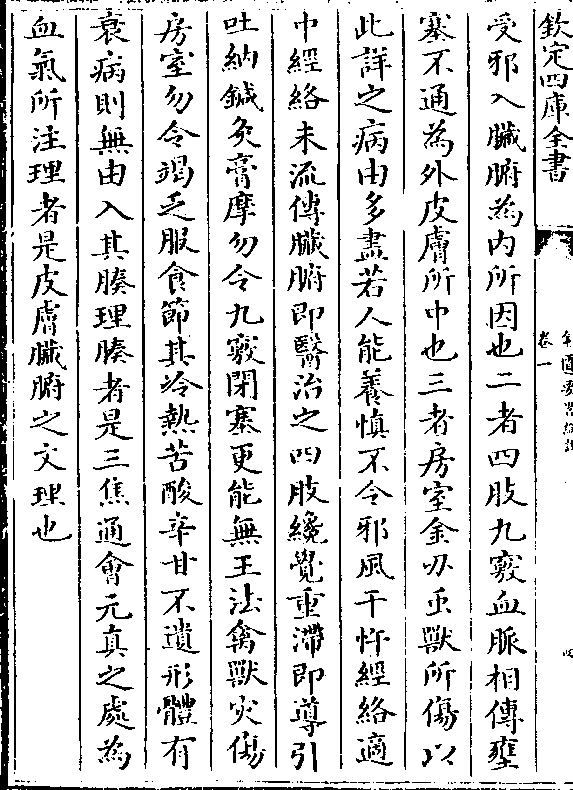 欽定四庫全書
卷一
受邪入臟腑為內所因也二者四肢九竅血脈相傳壅
塞不通為外皮膚所中也三者房室金刃蟲獸所傷以
此詳之病由多盡若人能養慎不令邪風干忤經絡適
中經絡未流傳臟腑即醫治之四肢纔覺重滯即導引
吐納鍼灸膏摩勿令九竅閉塞更能無王法禽獸災傷
房室勿令竭乏服食節其冷熱苦酸辛甘不遺形體有
衰病則無由入其腠理腠者是三焦通會元真之處為
血氣所注理者是皮膚臟腑之文理也